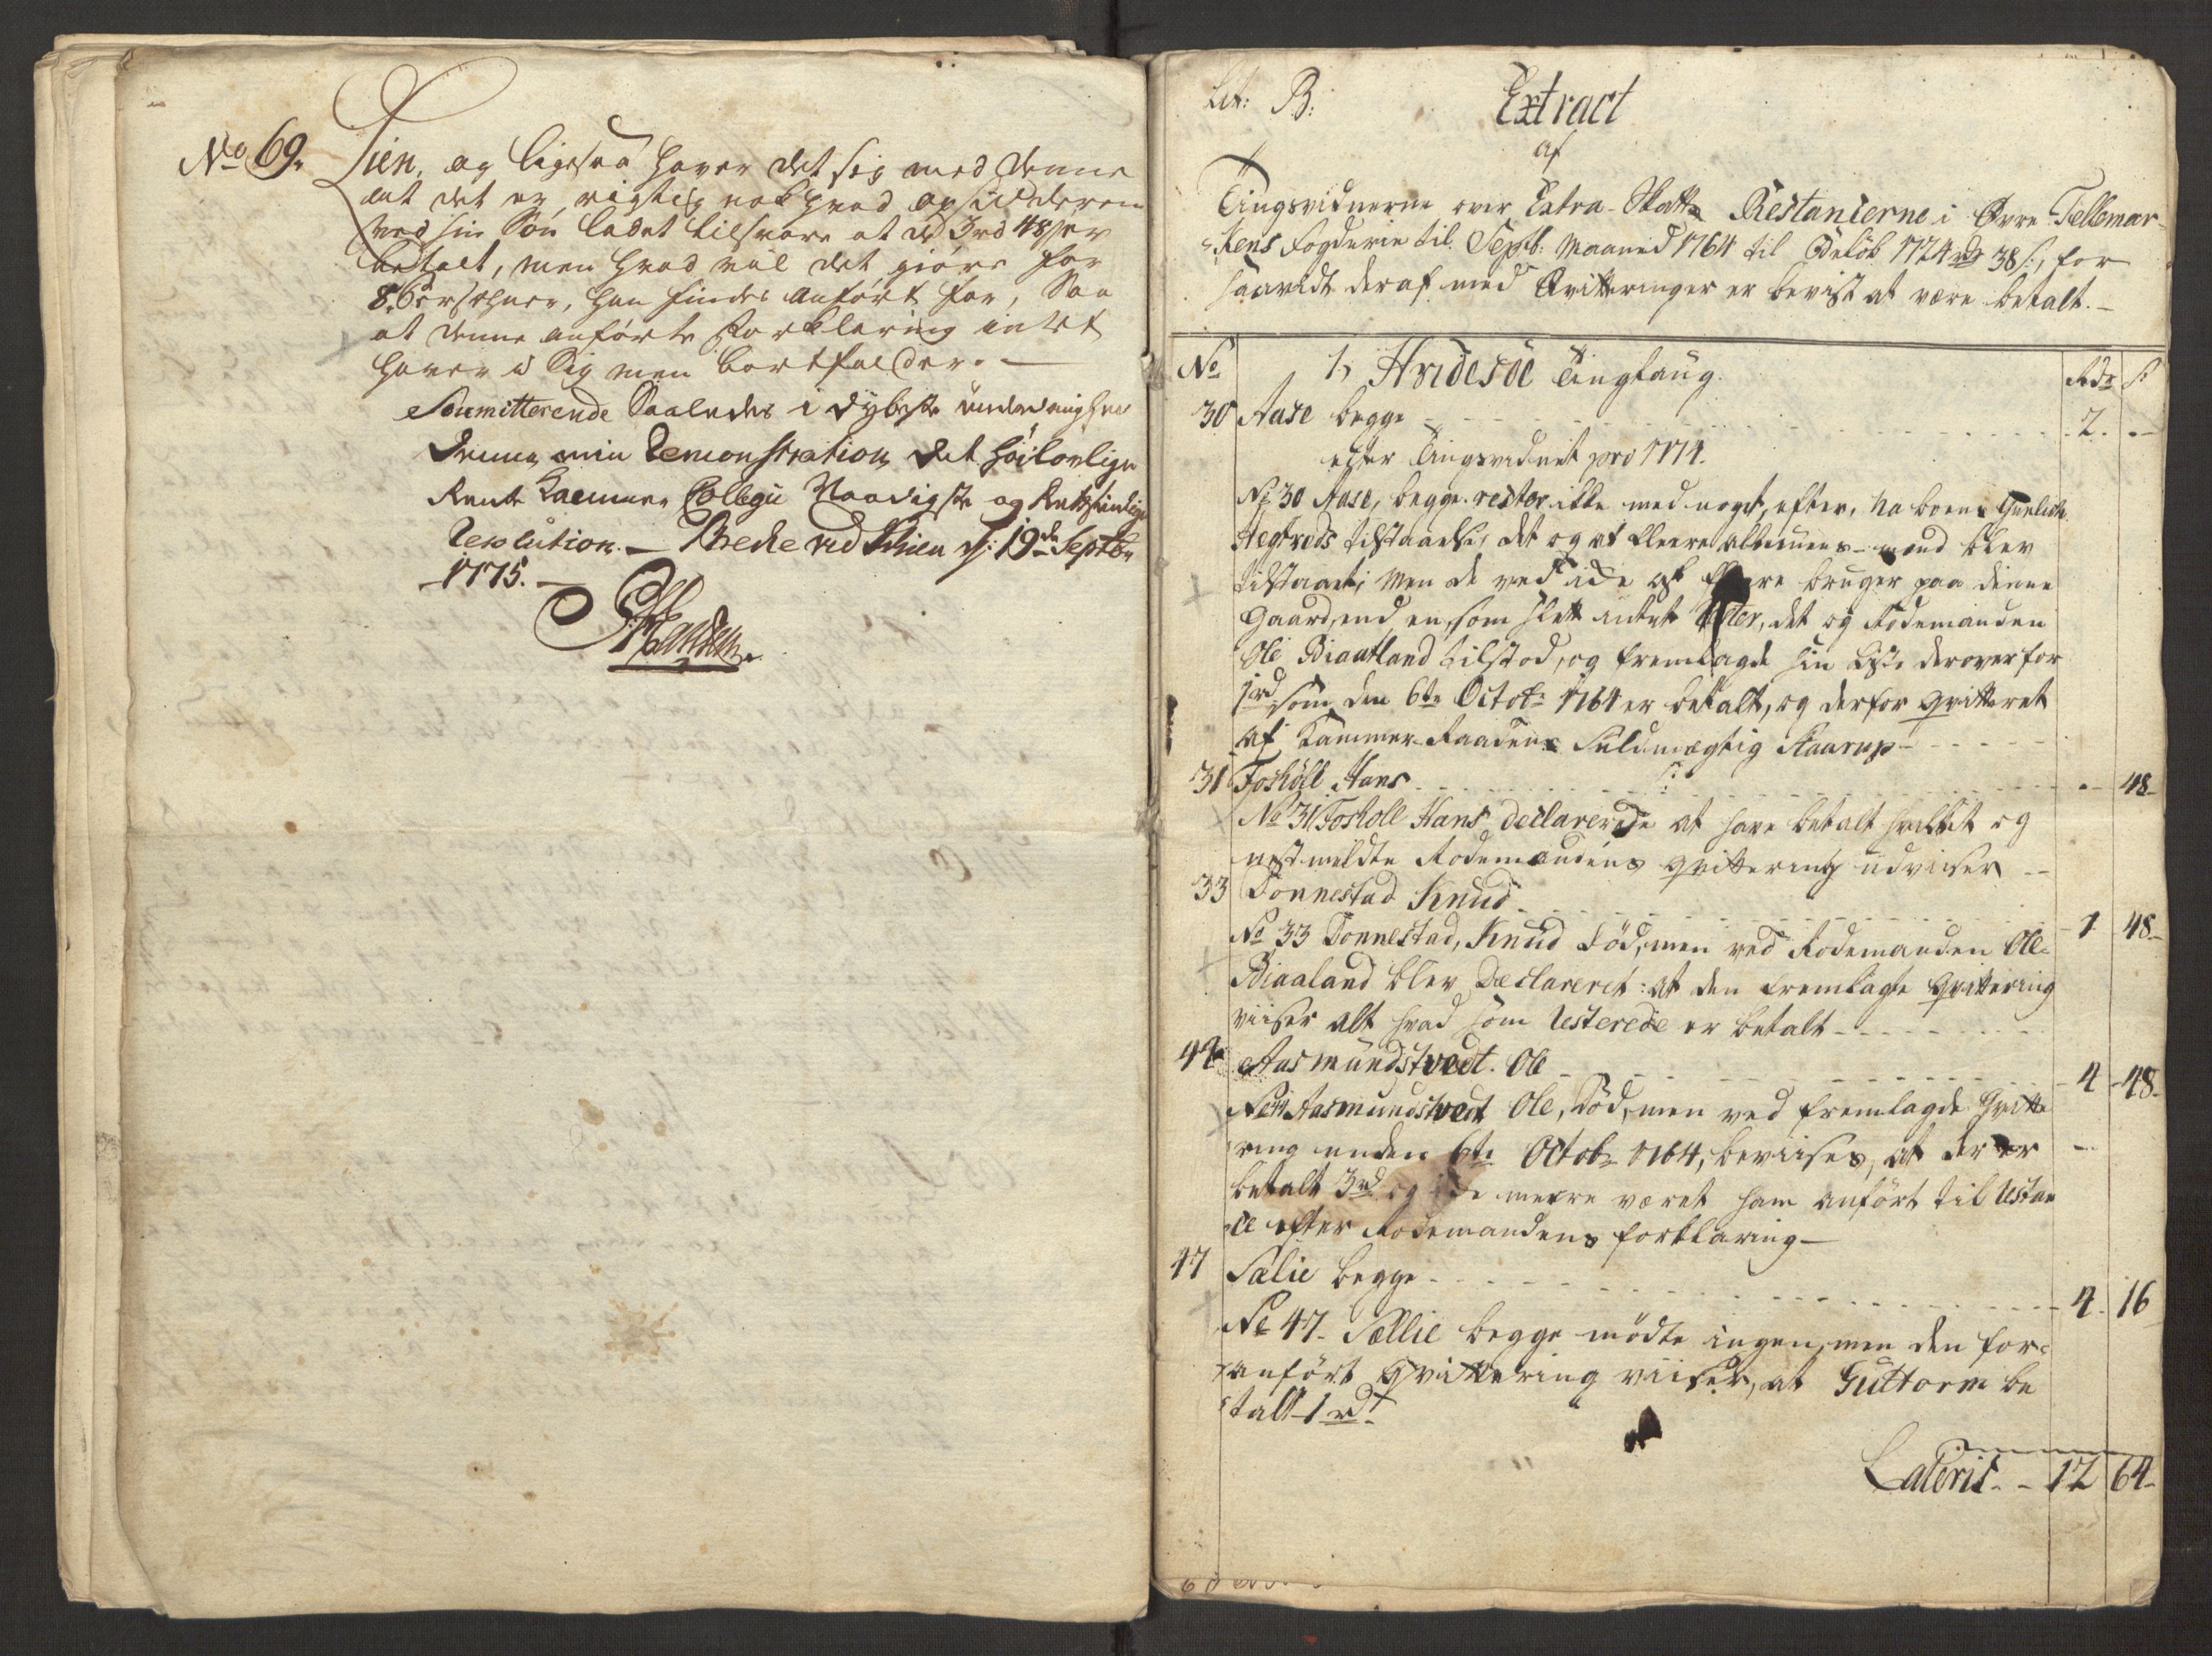 No 69. Lien, og ligesaa haver det sig med denne
at det er rigtig nok hvad opsidderen
ved sin Søn ladet tilsvare at de 3rd 48s er
betalt, men hvad vil det giøre for
8 Persohner, han findes anført for, Saa
at denne anførte Forklaring intet
haver i Sig men bortfalder. —
Soumitterende Saaledes i dybeste underdanighed
denne min Demonstration det høilovlige
Rente Kammer Collegii Naadigste og Retsindige
Resolution. — Brecke ved Schien d: 19de Septbr
1775. —
Lit: B:
Extract
af
Tingsvidnerne over Extra-Skatte Restancerne i Øvre Tellemar-
kens Fogderie til Septb: Maaned 1764 til Beløb 1724 rdr 38 s:, for
saavidt deraf med Qvitteringer er bevist at være betalt. —
No 1, Hvidesöe Tinglaug. Rdr s:
30 Aase begge - - - 2. -
efter Tingsvidnet pro 1774.
No 30 Aase, begge. rester ikke med noget, efter Naboens
tilstaaelse, det og af fleere Almues-mænd blev
tilstaaet; Men de ved ikke at fleere bruger paa denne
Gaard, end en, som slet intet Rester, det og Rodemanden
Ole Biaaland tilstod, og fremlagde sin Liste derover for
1rd som den 6te Octobr 1764 er betalt, og derfor qvitteret
af Kammer-Raadens Fuldmægtig Staarup - - -
31 Foshöll Hans - - - 48 -
No 31 Foshöll Hans declarerede at have betalt hvilket og
nestmeldte Rodemandens qvittering udviiser --
33 Tonnestad Knud - - - 1 48 -
No 33 Tonnestad, Knud död, men ved Rodemanden Ole
Biaaland blev Declareret: at den fremlagte Qvittering
viiser alt hvad som Resterede er betalt - - -
44 Aasmundstvedt. Ole - - - 4 48 -
No 44 Aasmundstvedt Ole, död, men ved fremlagde Qvitte
ring under 6te Octobr 1764, beviises, at der er
betalt 3rd og ikke meere været ham anført til Restan
ce efter Rodemandens forklaring —
47 Sælie begge - - - 4. 16
No 47. Sællie begge mödte ingen, men den for-
anført Qvittering viiser, at Guttorm be
talt 1 rd.
Lateris - - 12 64 -